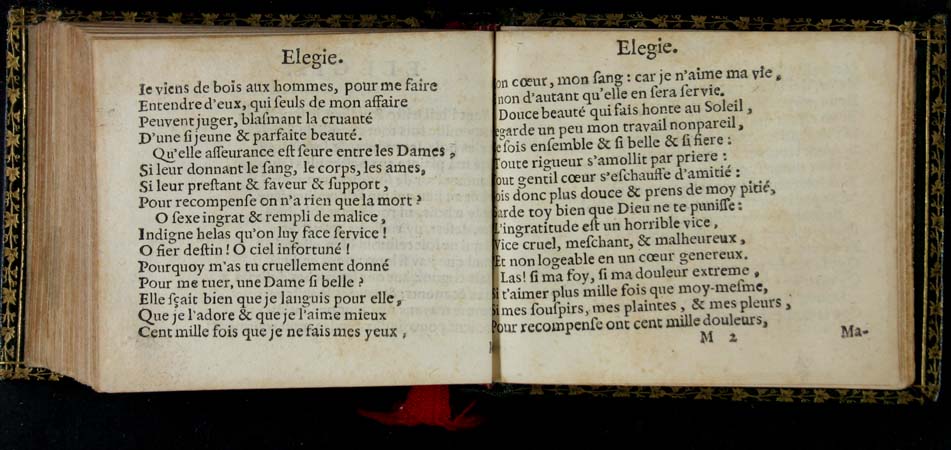 Elegie.
Ie viens de bois aux hommes, pour me faire
Entendre d'eux, qui ſeuls de mon affaire
Peuvent juger, blaſmant la cruauté
D'une ſi jeune & parfaite beauté.
Qu'elle aſſeurance eſt ſeure entre les Dames,
Si leur donnant le ſang, le corps, les ames,
Si leur preſtant & faveur & ſupport,
Pour recompenſe on n'a rien que la mort?
O ſexe ingrat & rempli de malice,
Indigne helas qu'on luy face ſervice!
O fier deſtin! O ciel infortuné!
Pourquoy m'as tu cruellement donné
Pour me tuer, une Dame ſi belle?
Elle ſçait bien que je languis pour elle,
Que je l'adore & que je l'aime mieux
Cent mille fois que je ne fais mes yeux,
Elegie.
on cœur, mon ſang: car je n'aime ma vie,
inon d'autant qu'elle en ſera ſervie.
Douce beauté qui fais honte au Soleil,
egarde un peu mon travail nonpareil,
e ſois enſemble & ſi belle & ſi fiere:
Toute rigueur s'amollit par priere:
out gentil cœur s'eſchauffe d'amitié:
ois donc plus douce & prens de moy pitié,
arde toy bien que Dieu ne te puniſſe:
L'ingratitude eſt un horrible vice,
Vice cruel, meſchant, & malheureux,
Et non logeable en un cœur genereux.
Las! ſi ma foy, ſi ma douleur extreme,
Si t'aimer plus mille fois que moy-meſme,
Si mes ſouſpirs, mes plaintes, & mes pleurs,
Pour recompenſe ont cent mille douleurs,
M 2 Ma-